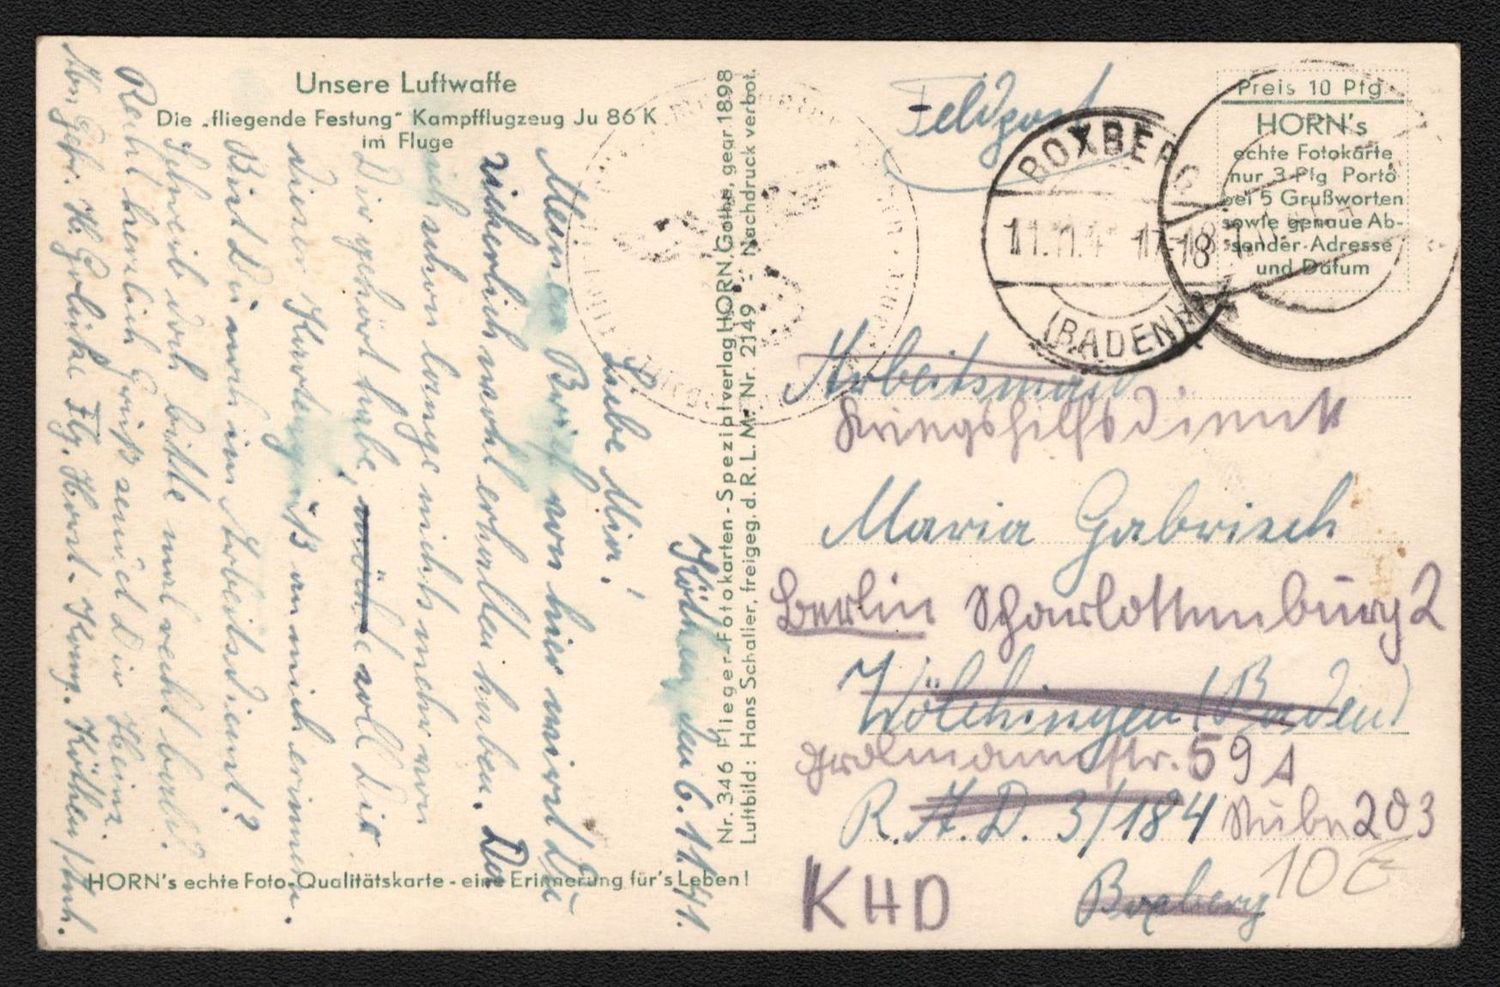 Unsere Luftwaffe
Die „fliegende Festung" Kampfflugzeug Ju 86 K
im Fluge
Köthen, den 6.11.41.
Liebe Mia!
Meinen Brief von hier wirst Du
sicherlich wohl erhalten haben. Da
ich schon lange nichts mehr von
Dir gehört habe, soll Dir
dieser Kartengruß an mich erinnern.
Bist Du noch im Arbeitsdienst?
Schreib doch bitte mal recht bald.
Recht herzlich Grüß sendet Dir Heinz.
Abs. Gefr. H. Flg. Horst-Komp. Köthen/Anh.
HORN's echte Foto-Qualitätskarte - eine Erinnerung für's Leben!
Nr. 346 Flieger-Fotokarten-Spezialverlag HORN, Gotha, gegr. 1898
Luftbild: Hans Schaller, freigeg. d. R. L. M. Nr. 2149 - Nachdruck verbot.
Feldpost
BOXBERG
11.11.4 17-18
(BADEN)
Preis 10 Pfg.
HORN's
echte Fotokarte
nur 3 Pfg Porto
bei 5 Grußworten
sowie genaue Ab-
sender-Adresse
und Datum
Arbeitsmaid
Kriegshilfsdienst
Maria Gabrisch
Berlin Charlottenburg 2
Wölchingen (Baden)
Grolmannstr. 59 A
R.A.D. 3/184 Stube 203
KHD Boxberg
10 €